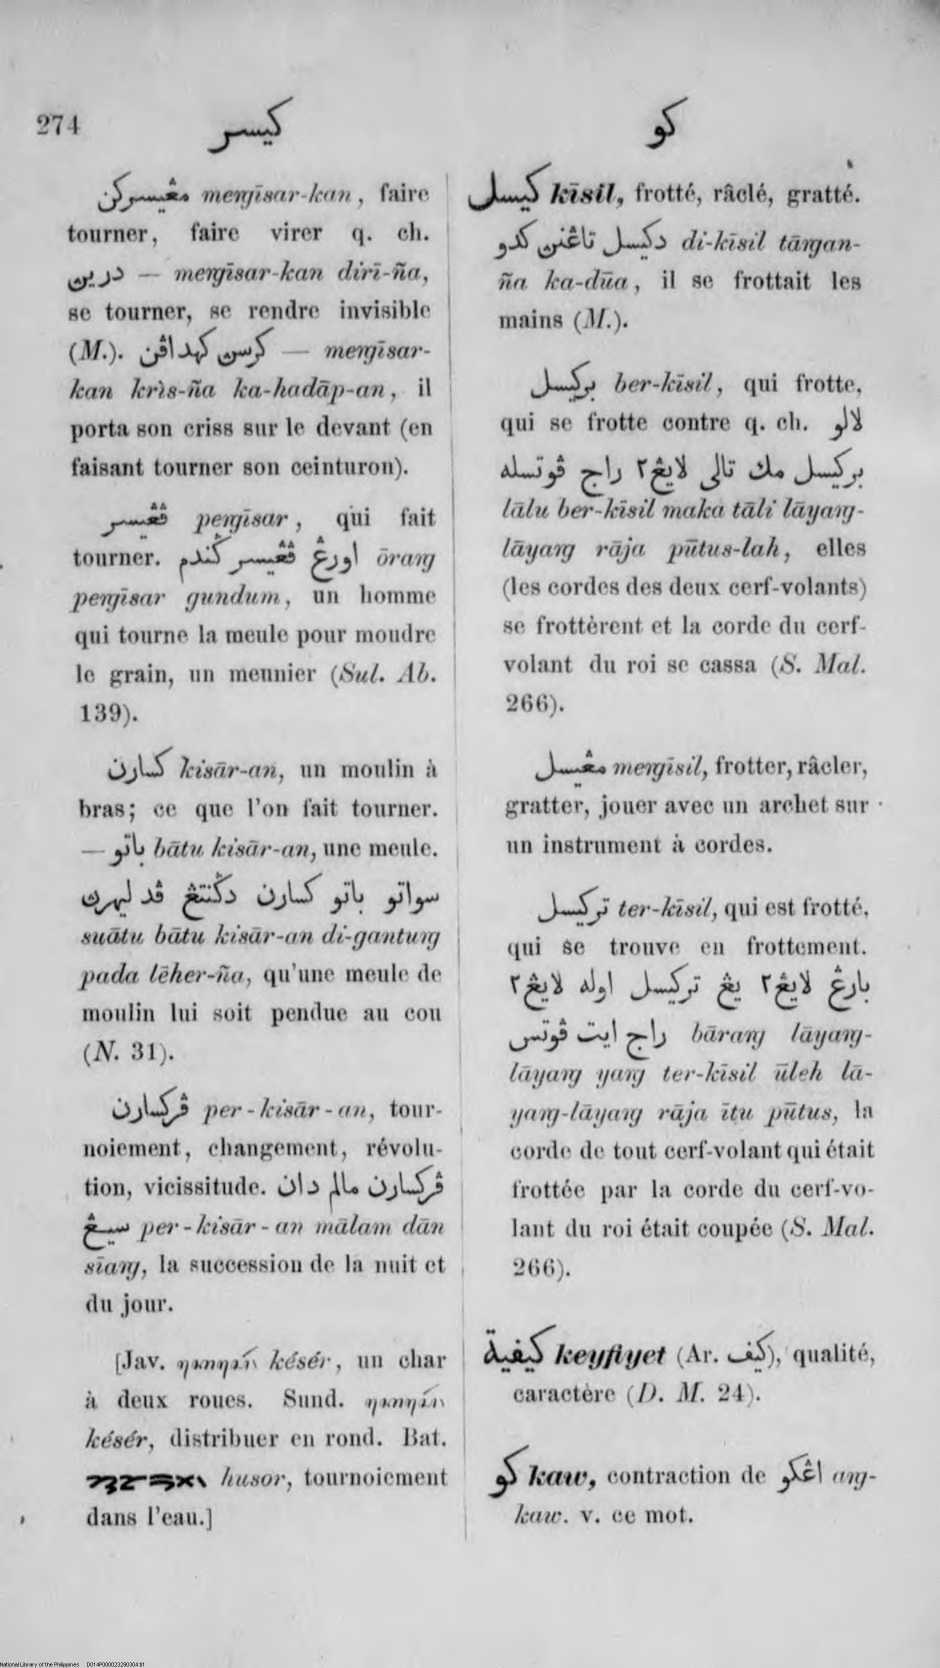 274
كيسر
كو
مڠيسركن meṅīsar-kan, faire
tourner, faire virer q. ch.
درين — meṅīsar-kan dirī-ña,
se tourner, se rendre invisible
(M.). كرسن كهداڤن — meṅīsar-
kan krìs-ña ka-hadāp-an, il
porta son criss sur le devant (en
faisant tourner son ceinturon).
ڤڠيسر peṅīsar, qui fait
tourner. اورڠ ڤڠيسر ڬندم ōraṅ
peṅīsar gundum, un homme
qui tourne la meule pour moudre
le grain, un meunier (Sul. Ab.
139).
كسارن kisār-an, un moulin à
bras; ce que l'on fait tourner.
— باتو bātu kisār-an, une meule.
سواتو باتو كسارن دڬنتڠ ڤد ليهرڽ
suātu bātu kisār-an di-gantuṅ
pada lēher-ña, qu'une meule de
moulin lui soit pendue au cou
(N. 31).
ڤركسارن per-kisār-an, tour-
noiement, changement, révolu-
tion, vicissitude. ڤركسارن مالم دان
سيڠ per-kisār-an mālam dān
sīaṅ, la succession de la nuit et
du jour.
[Jav. késér, un char
à deux roues. Sund.
késér, distribuer en rond. Bat.
husor, tournoiement
dans l'eau.]
كيسل kīsil, frotté, râclé, gratté.
دكيسل تاڠنن كدو di-kīsil tāṅan-
ña ka-dūa, il se frottait les
mains (M.).
بركيسل ber-kīsil, qui frotte,
qui se frotte contre q. ch. لالو
بركيسل مك تالى لايڠ٢ راج ڤوتسله
lālu ber-kīsil maka tāli lāyaṅ-
lāyaṅ rāja pūtus-lah, elles
(les cordes des deux cerf-volants)
se frottèrent et la corde du cerf-
volant du roi se cassa (S. Mal.
266).
مڠيسل meṅīsil, frotter, râcler,
gratter, jouer avec un archet sur
un instrument à cordes.
تركيسل ter-kīsil, qui est frotté,
qui se trouve en frottement.
بارڠ لايڠ٢ يڠ تركيسل اوله لايڠ٢
راج ايت ڤوتس bāraṅ lāyaṅ-
lāyaṅ yaṅ ter-kīsil ūleh lā-
yaṅ-lāyaṅ rāja ītu pūtus, la
corde de tout cerf-volant qui était
frottée par la corde du cerf-vo-
lant du roi était coupée (S. Mal.
266).
كيفية keyfiyet (Ar. كيف), qualité,
caractère (D. M. 24).
كو kaw, contraction de اڠكو aṅ-
kaw. v. ce mot.
National Library of the Philippines